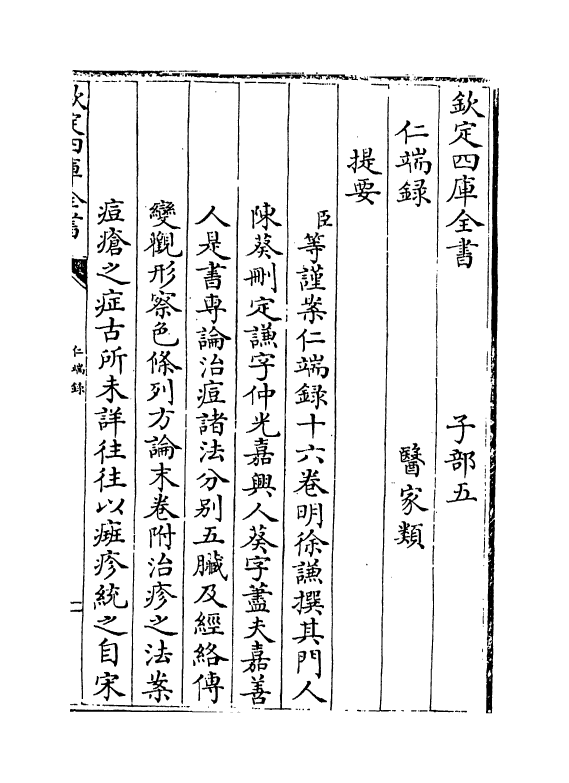 欽定四庫全書　子部五
仁端録　醫家類
提要
臣等謹案仁端録十六卷明徐謙撰其門人
陳葵刪定謙字仲光嘉興人葵字藎夫嘉善
人是書專論治痘諸法分别五臟及經絡傳
變觀形察色條列方論末卷附治疹之法案
痘瘡之症古所未詳往往以癍疹統之自宋
欽定四庫全書
仁端録
一